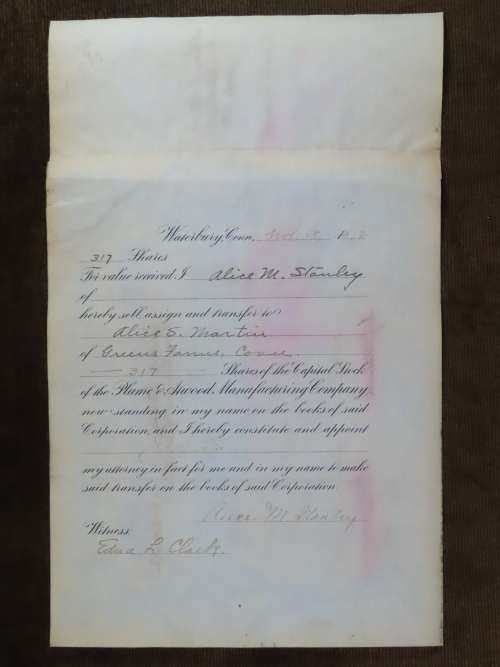 Waterbury, Conn.
317 Shares
For value received I Alice M. Stanley
of
hereby sell, assign and transfer to
Alice S. Martin
of Greens Farms, Conn.
317 Shares of the Capital Stock
of the Plume & Atwood Manufacturing Company
now standing in my name on the books of said
Corporation, and I hereby constitute and appoint
my attorney in fact for me and in my name to make
said transfer on the books of said Corporation.
Alice M. Stanley
Witness:
Edna L. Clark.